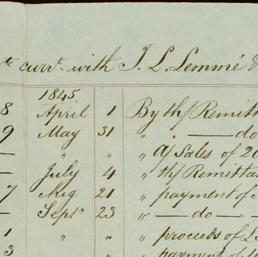 curr.t with J. L. Lemmé &
1845
8 April 1 By th/ Remitt
9 May 31 " — do
— " " A/ Sales of 20
— July 4 " th/ Remittan
7 Aug 21 " payment of
— Sept.r 23 " — do — "
1 " " " proceeds of L
3 " " payment of